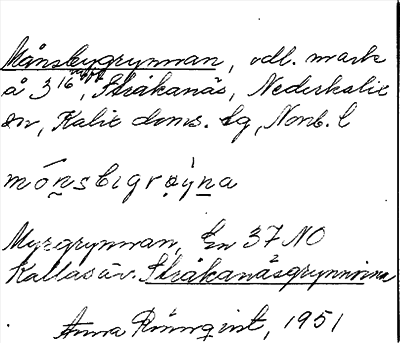 Månsbygrynnan, odl. mark
å 3 16, Stråkanäs, Nederkalix
sn, Kalix doms. lg, Norrb. l
mónsbıgrøẏna
Myrgrynnan, En 37 NO
Kallas äv. Stråkanäsgrynnorna
Anna Rönnqvist, 1951